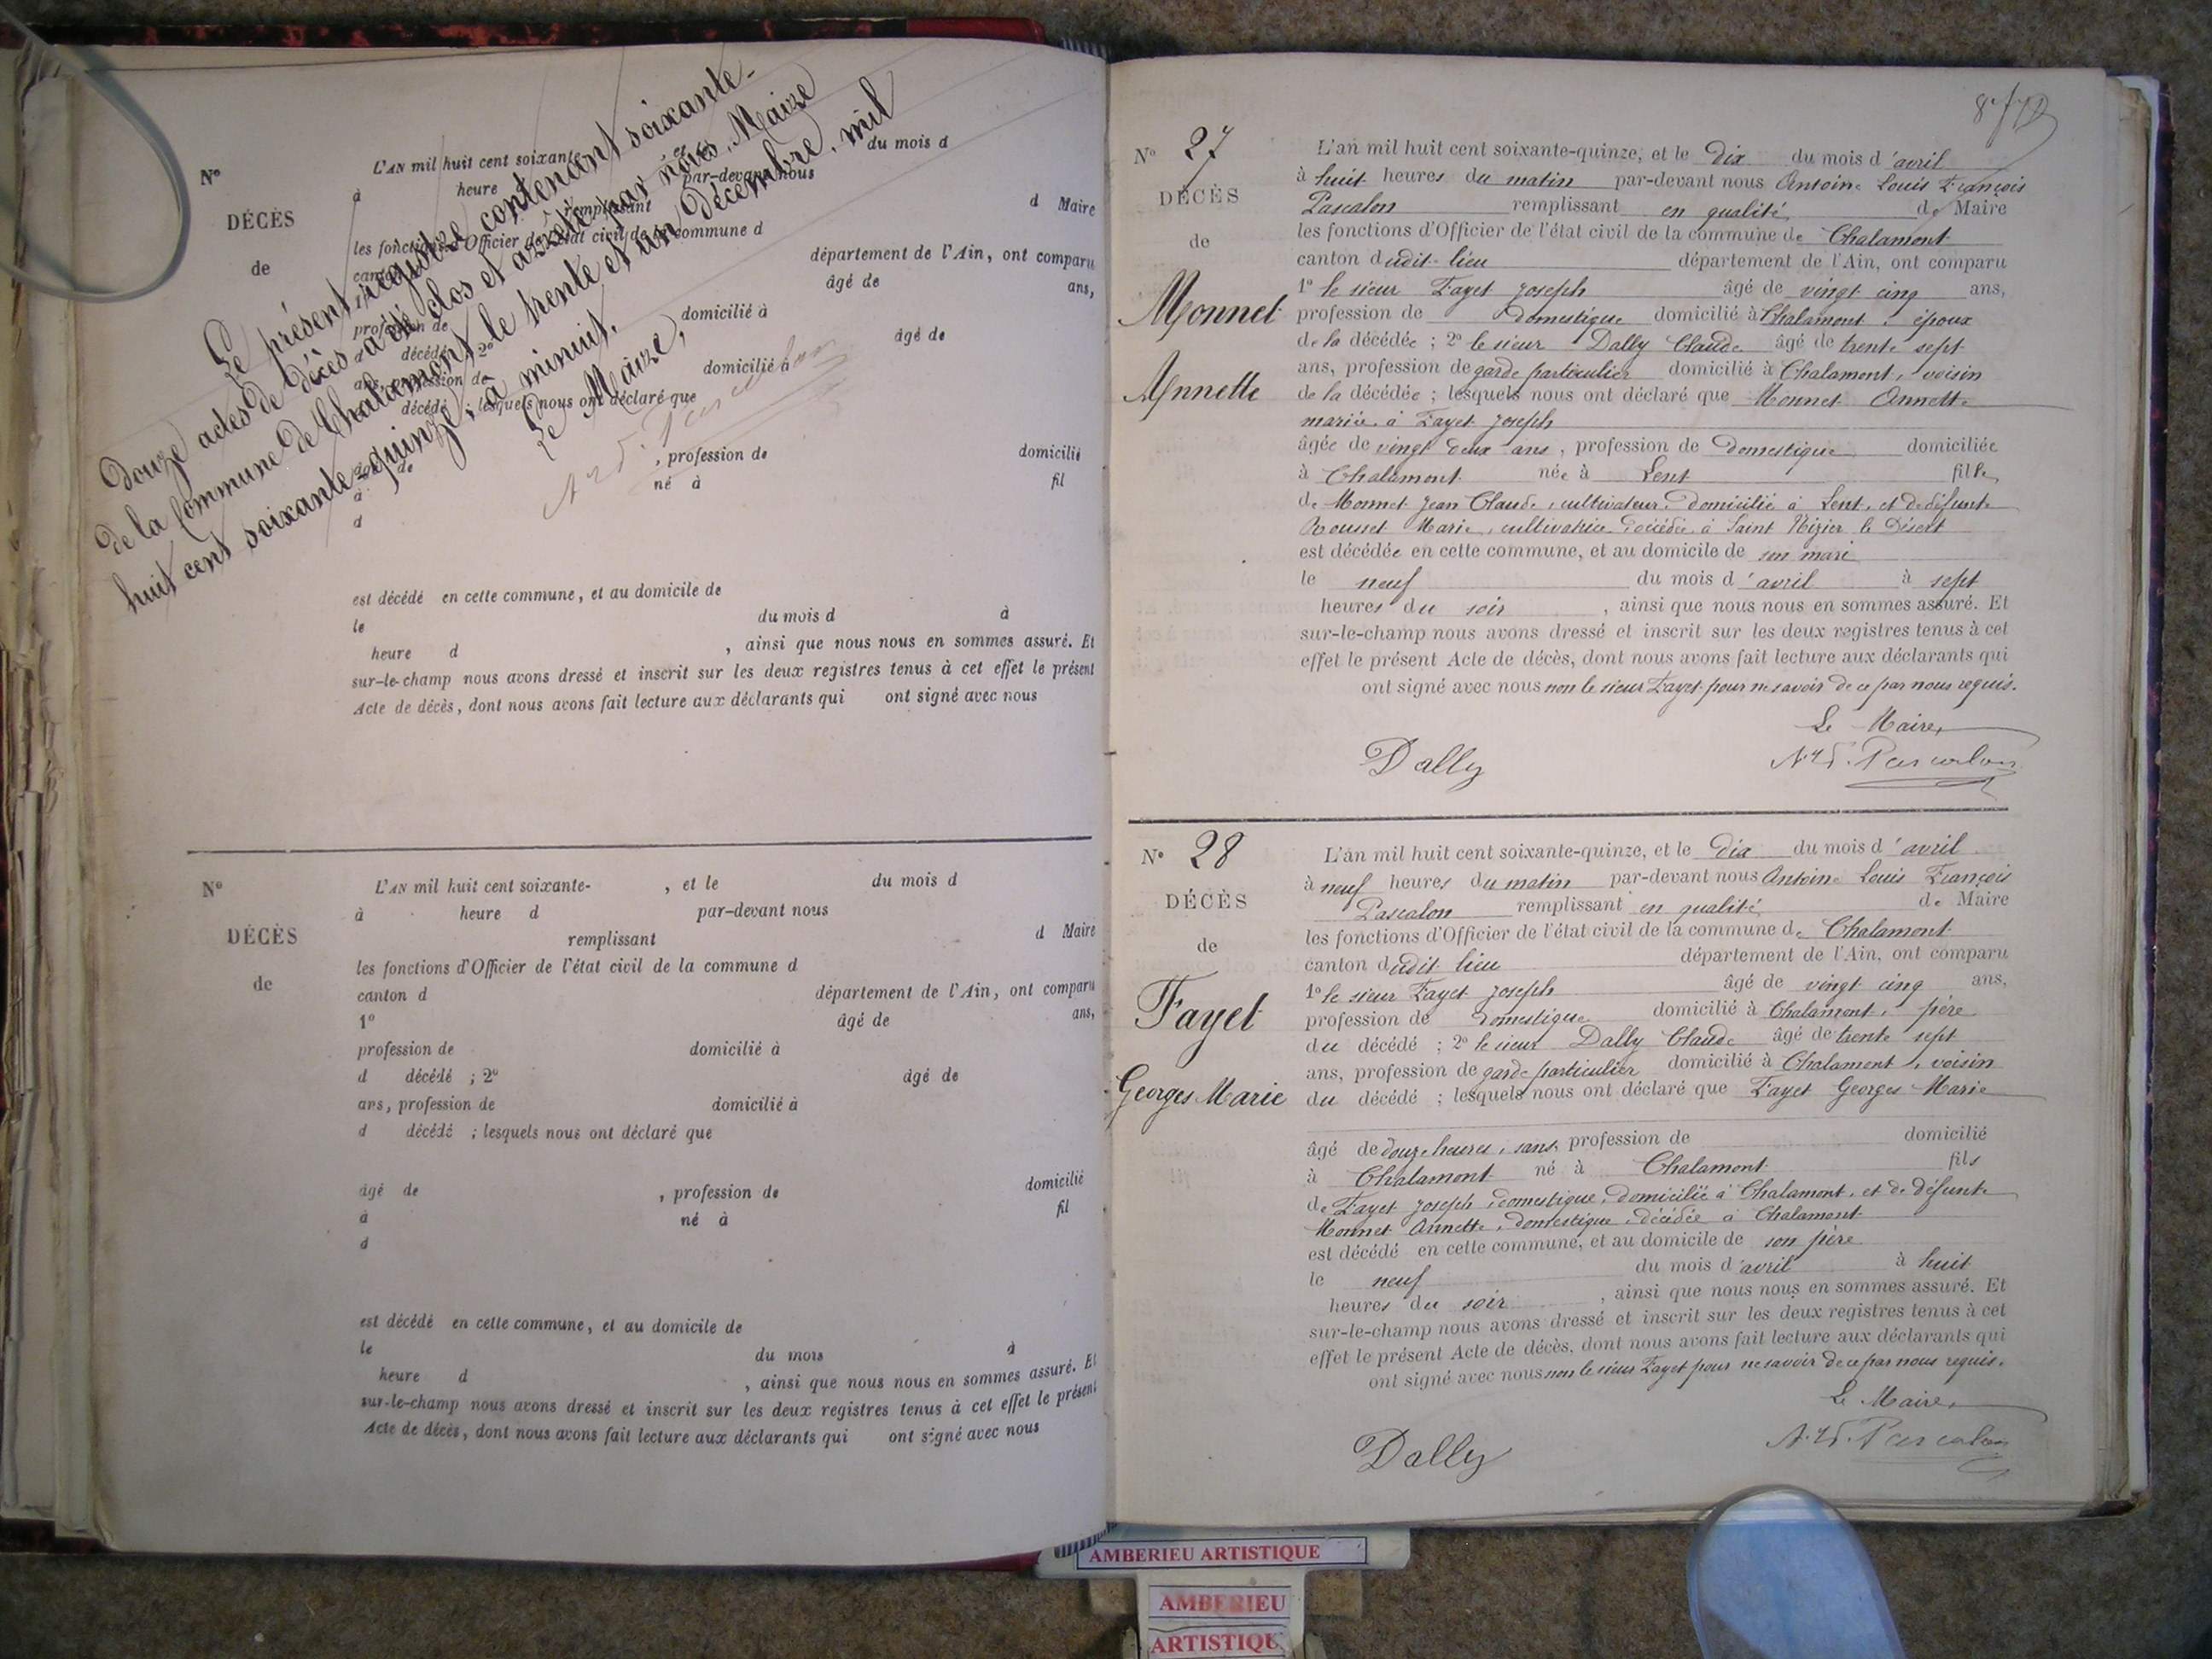 Le présent registre contenant soixante-
douze actes de Décès a été clos et arrêté par nous, Maire
de la Commune de Chalamont, le trente et un Décembre, mil
huit cent soixante-quinze, à minuit.
Le Maire,
Nº L'AN mil huit cent soixante- , et le du mois d
à heure par-devant nous
DÉCÈS remplissant d Maire
les fonctions d'Officier de l'état civil de la commune d
de canton département de l'Ain, ont comparu
âgé de ans,
profession de domicilié à
d décédé 2º âgé de
ans, profession de domicilié à
décédé ; lesquels nous ont déclaré que
de , profession de domicilié
à né à fil
d
est décédé en cette commune, et au domicile de
le du mois d à
heure d , ainsi que nous nous en sommes assuré. Et
sur-le-champ nous avons dressé et inscrit sur les deux registres tenus à cet effet le présent
Acte de décès, dont nous avons fait lecture aux déclarants qui ont signé avec nous
Nº L'AN mil huit cent soixante- , et le du mois d
à heure d par-devant nous
DÉCÈS remplissant d Maire
les fonctions d'Officier de l'état civil de la commune d
de canton d département de l'Ain, ont comparu
1º âgé de ans,
profession de domicilié à
d décédé ; 2º âgé de
ans, profession de domicilié à
d décédé ; lesquels nous ont déclaré que
âgé de , profession de domicilié
à né à fil
d
est décédé en cette commune, et au domicile de
le du mois à
heure d , ainsi que nous nous en sommes assuré. Et
sur-le-champ nous avons dressé et inscrit sur les deux registres tenus à cet effet le présent
Acte de décès, dont nous avons fait lecture aux déclarants qui ont signé avec nous
Nº 27 L'an mil huit cent soixante-quinze, et le dix du mois d'avril
à huit heures du matin par-devant nous Antoine Louis François
DÉCÈS Pascalon remplissant en qualité de Maire
les fonctions d'Officier de l'état civil de la commune de Chalamont
de canton dudit lieu département de l'Ain, ont comparu
1º le sieur Fayet Joseph âgé de vingt cinq ans,
Monnet profession de domestique domicilié à Chalamont, époux
de la décédée ; 2º le sieur Dally Claude âgé de trente sept
ans, profession de garde particulier domicilié à Chalamont, voisin
Annette de la décédée ; lesquels nous ont déclaré que Monnet Annette
mariée à Fayet Joseph
âgée de vingt deux ans, profession de Domestique domiciliée
à Chalamont née à Lent fille
de Monnet Jean Claude, cultivateur, domicilié à Lent, et de défunte
Rousset Marie, cultivatrice, décédée à Saint Nizier le Désert
est décédée en cette commune, et au domicile de son mari
le neuf du mois d'avril à sept
heures du soir , ainsi que nous nous en sommes assuré. Et
sur-le-champ nous avons dressé et inscrit sur les deux registres tenus à cet
effet le présent Acte de décès, dont nous avons fait lecture aux déclarants qui
ont signé avec nous non le sieur Fayet pour ne savoir de ce par nous requis.
Le Maire,
Dally Pascalon
Nº 28 L'an mil huit cent soixante-quinze, et le dix du mois d'avril
à neuf heures du matin par-devant nous Antoine Louis François
DÉCÈS Pascalon remplissant en qualité de Maire
les fonctions d'Officier de l'état civil de la commune de Chalamont
de canton dudit lieu département de l'Ain, ont comparu
1º le sieur Fayet Joseph âgé de vingt cinq ans,
Fayet profession de domestique domicilié à Chalamont, père
du décédé ; 2º le sieur Dally Claude âgé de trente sept
ans, profession de garde particulier domicilié à Chalamont, voisin
Georges Marie du décédé ; lesquels nous ont déclaré que Fayet Georges Marie
âgé de douze heures, sans profession de domicilié
à Chalamont né à Chalamont fils
de Fayet Joseph, domestique, domicilié à Chalamont, et de défunte
Monnet Annette, domestique, décédée à Chalamont
est décédé en cette commune, et au domicile de son père
le neuf du mois d'avril à huit
heures du soir , ainsi que nous nous en sommes assuré. Et
sur-le-champ nous avons dressé et inscrit sur les deux registres tenus à cet
effet le présent Acte de décès, dont nous avons fait lecture aux déclarants qui
ont signé avec nous non le sieur Fayet pour ne savoir de ce par nous requis.
Le Maire,
Dally Pascalon
AMBERIEU ARTISTIQUE
AMBERIEU
ARTISTIQUE